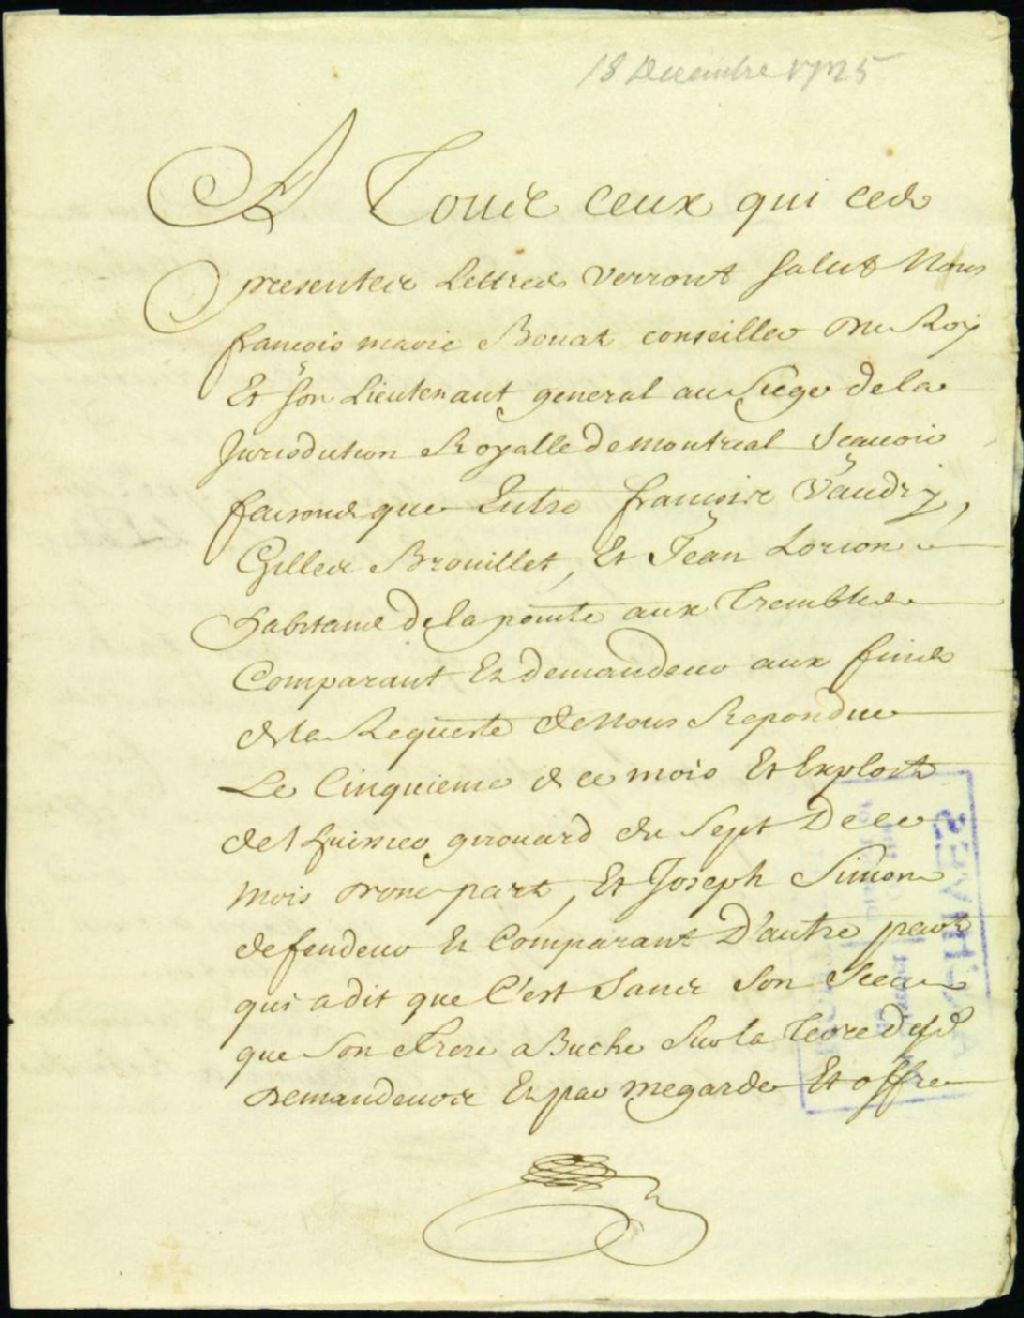 18 Decembre 1725
A Tous ceux qui ces
presentes Lettres verront Salut Nous
françois marie Bouat conseiller du Roy
Et son Lieutenant general au Siege de la
Jurisdiction Royalle de montreal Scauoir
faisons que Entre françois Vaudry,
Gilles Brouillet, Et Jean Lorion
habitans de la pointe aux Trembles
Comparant Et demandeur aux fins
de la Requeste de nous Repondue
Le Cinquieme de ce mois Et Exploit
de l huissier girouard du Sept De ce
mois d'une part, Et Joseph Simon
defendeur Et Comparant D'autre part
qui a dit que C'est Sans Son Sceu
que Son frere a Buché Sur la Terre desd
Demandeurs Et par megarde Et offre
ARCHIVES